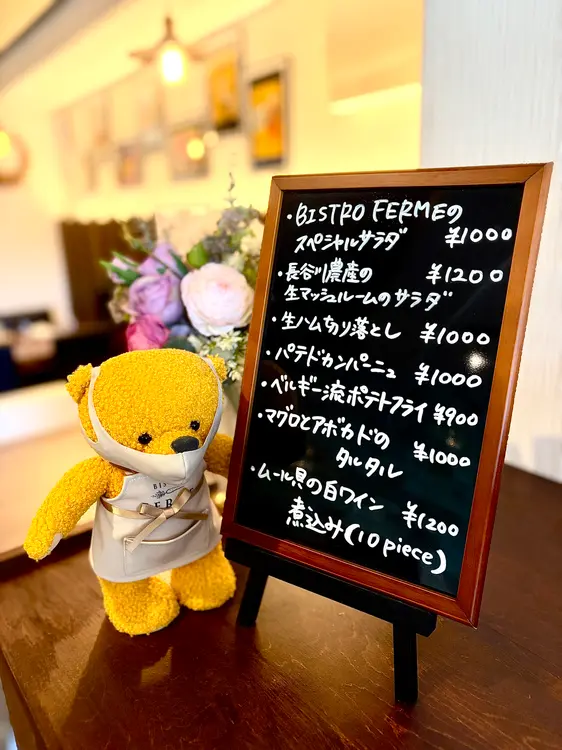 ・BISTRO FERMEの
スペシャルサラダ ¥1000
・長谷川農産の ¥1200
生マッシュルームのサラダ
・生ハム切り落とし ¥1000
・パテドカンパーニュ ¥1000
・ベルギー流ポテトフライ ¥900
・マグロとアボカドの
タルタル ¥1000
・ムール貝の白ワイン
煮込み(10piece) ¥1200
BIS
FER